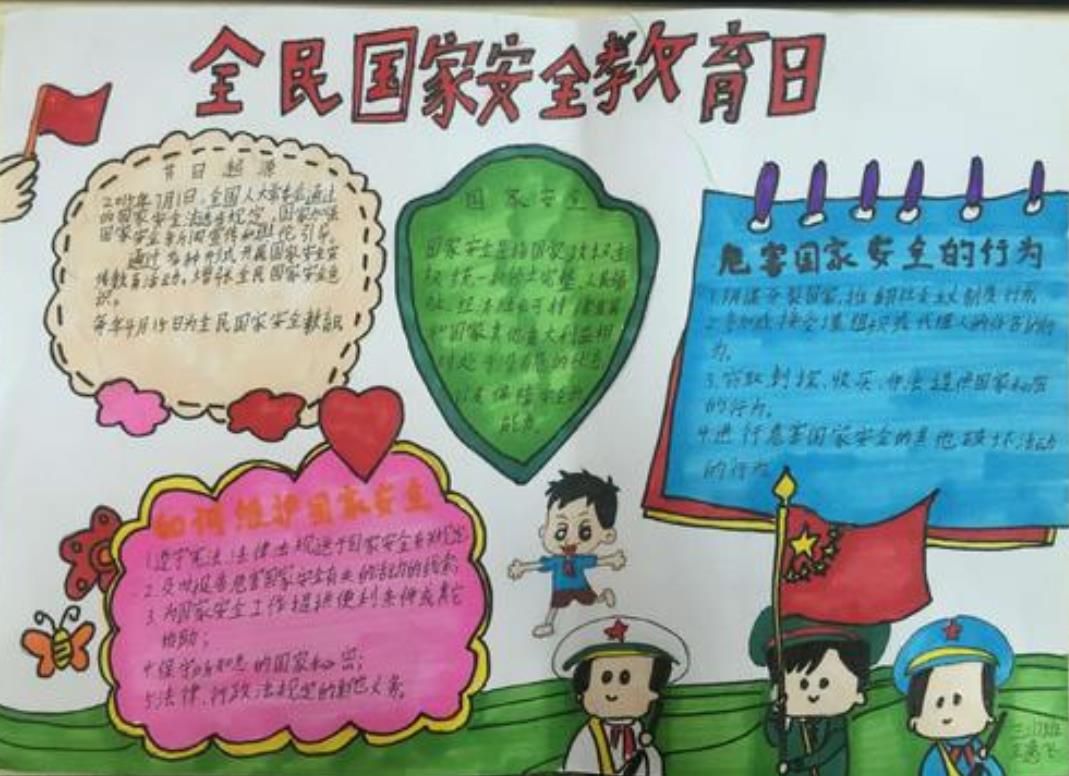 全民国家安全教育日
节日起源
2015年7月1日,全国人大常委会通过
的国家安全法
国家安全
通过各种形式开展国家安全宣
传教育活动,增强全民国家安全意
识。
每年4月15日为全民国家安全教育
国家安全
国家安全是指国家政权、主
权、统一和领土完整、人民福
祉、经济社会可持续发展
和国家其他重大利益相
对处于没有危险的状态
保障安全的
能力。
危害国家安全的行为
1.阴谋分裂国家,推翻社会主义制度行为
2.参加或接受组织或代理人的任务的行
为。
3.窃取、刺探、收买、非法提供国家秘密
的行为。
4.进行危害国家安全的其他破坏活动
的行为
如何维护国家安全
1.遵守宪法、法律法规关于国家安全有关规定
2.及时报告危害国家安全有关的活动的线索;
3.为国家安全工作提供便利条件或其它
协助;
4.保守所知悉的国家秘密;
5.法律、行政法规规定的其他义务。